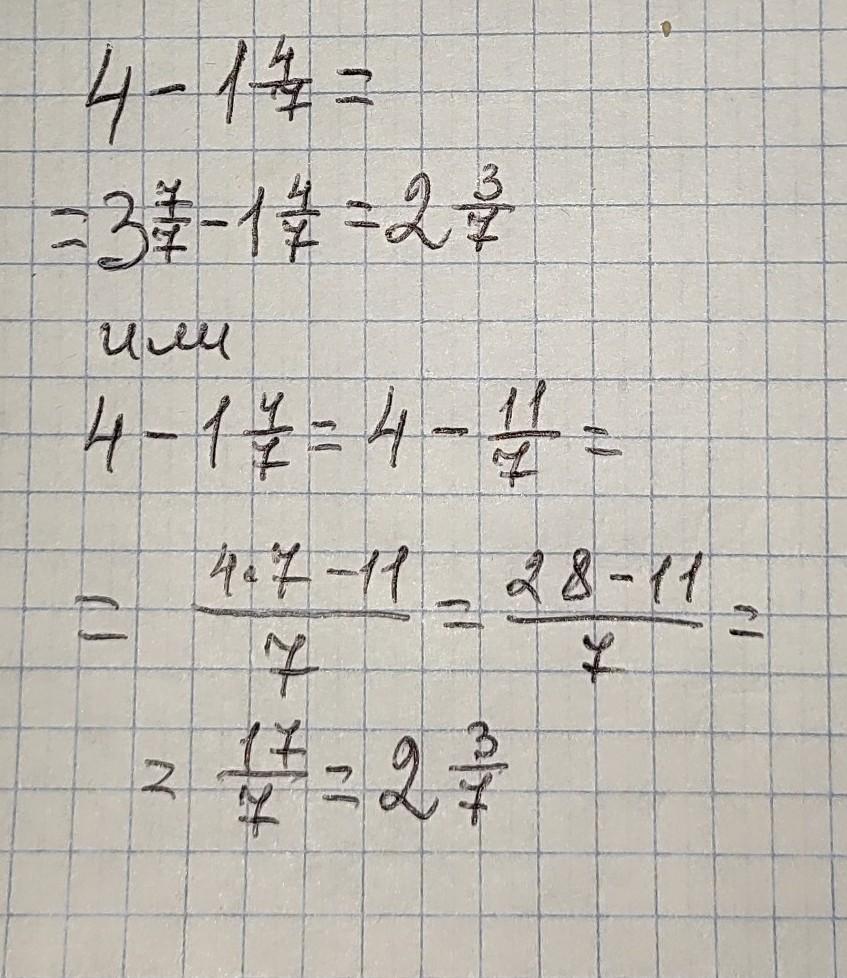 4 - 1 4/7 =
= 3 7/7 - 1 4/7 = 2 3/7
или
4 - 1 4/7 = 4 - 11/7 =
= (4·7 - 11)/7 = (28 - 11)/7 =
= 17/7 = 2 3/7